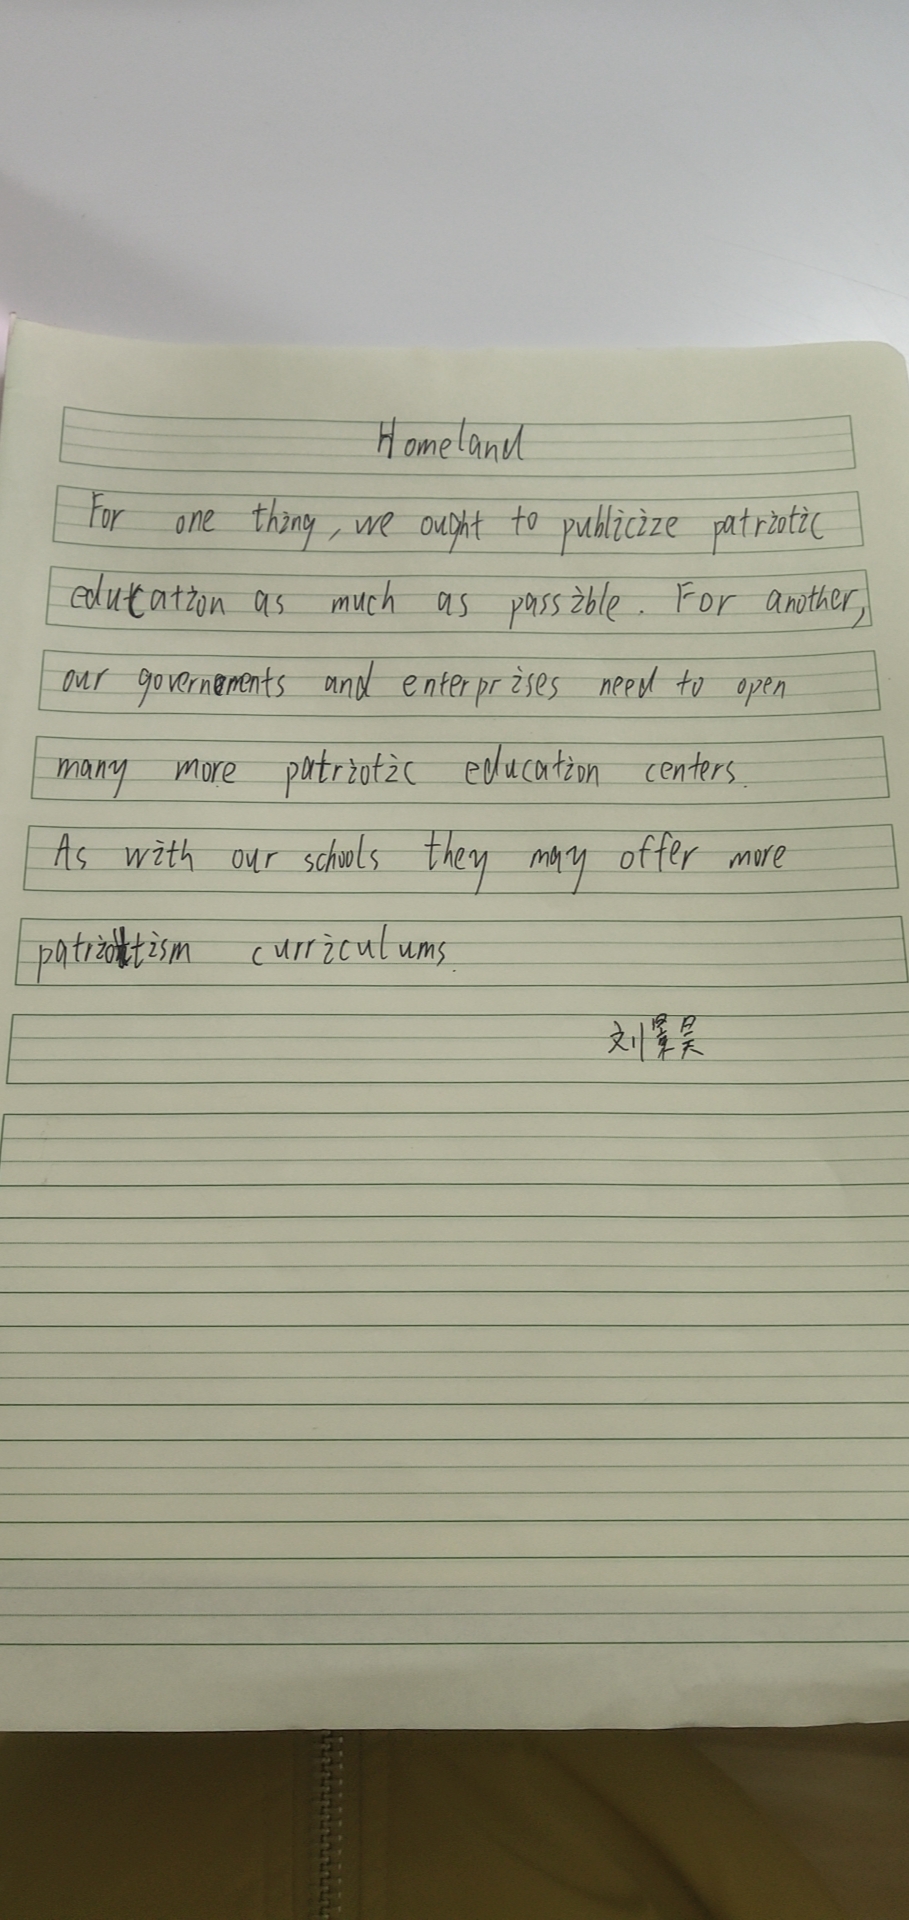 Homeland
For one thing, we ought to publicize patriotic
education as much as passible. For another,
our governments and enterprises need to open
many more patriotic education centers.
As with our schools they may offer more
patriotism curriculums.
刘景昊